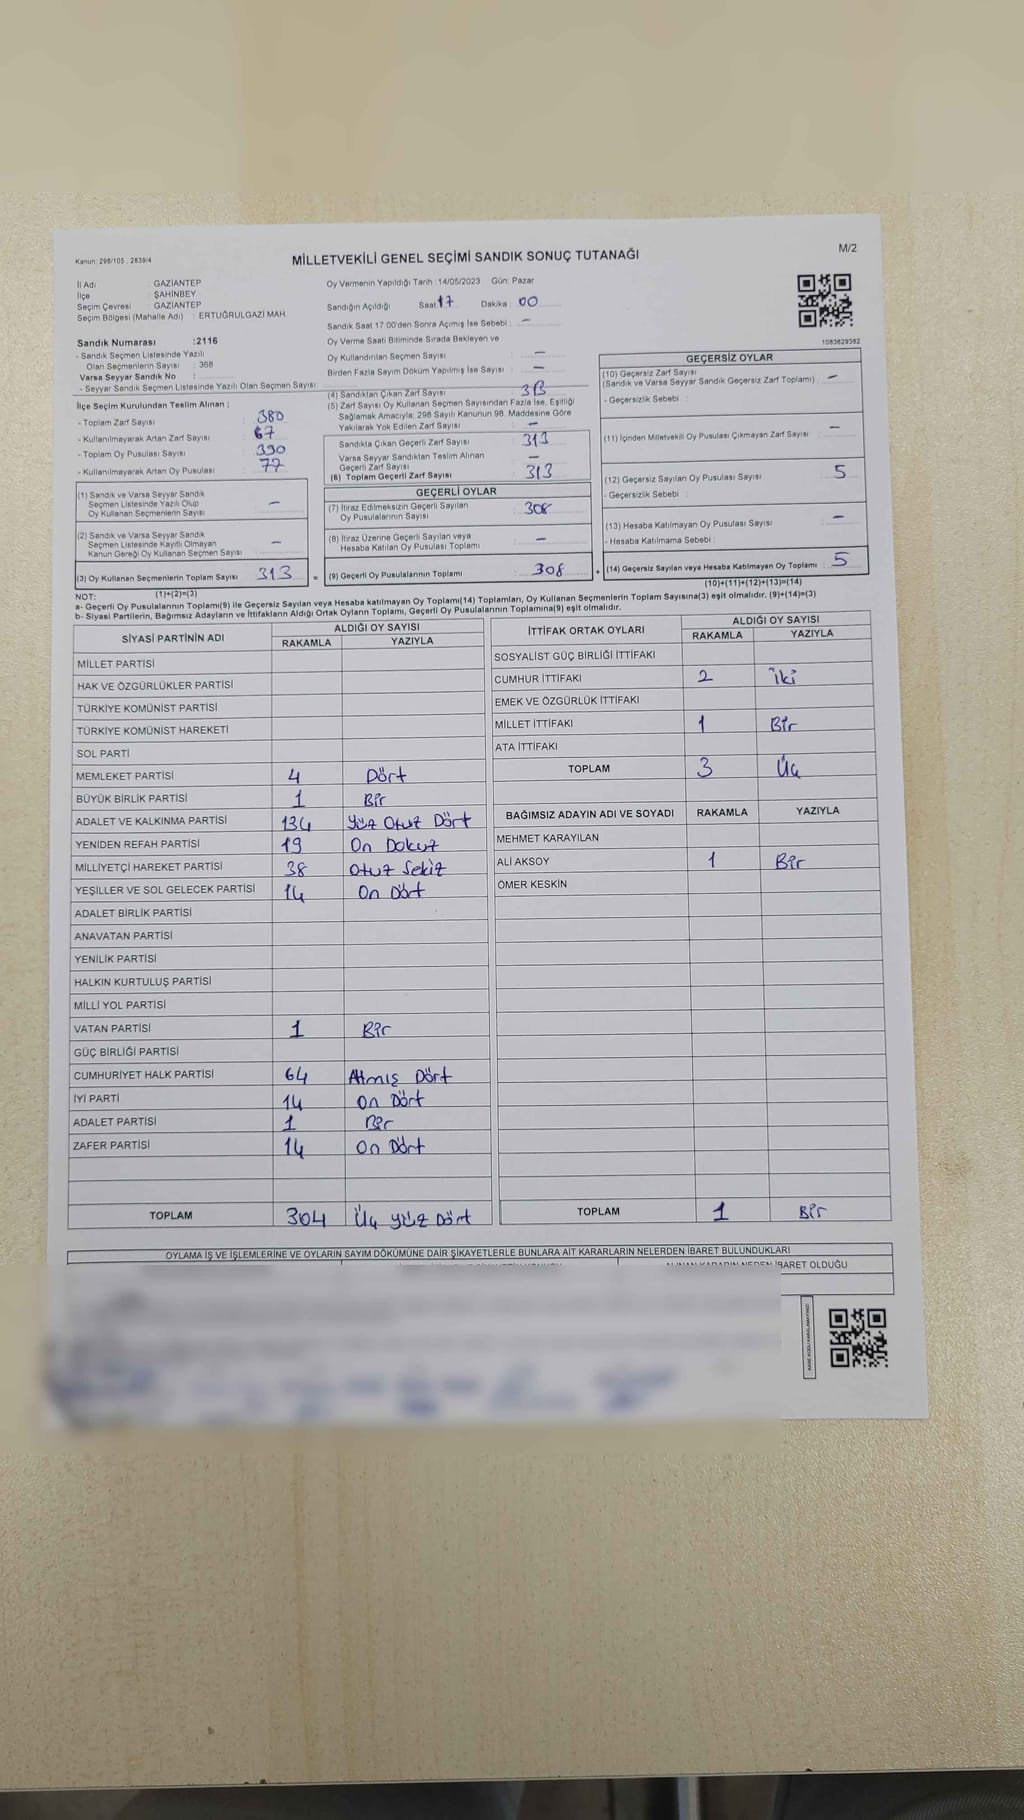 Kanun: 298/105 , 2839/4
MİLLETVEKİLİ GENEL SEÇİMİ SANDIK SONUÇ TUTANAĞI
M/2
İl Adı : GAZİANTEP
İlçe : ŞAHİNBEY
Seçim Çevresi : GAZİANTEP
Seçim Bölgesi (Mahalle Adı) : ERTUĞRULGAZİ MAH.
Oy Vermenin Yapıldığı Tarih :14/05/2023 Gün: Pazar
Sandığın Açıldığı Saat 17 Dakika 00
Sandık Saat 17:00'den Sonra Açımış İse Sebebi : -
Oy Verme Saati Bitiminde Sırada Bekleyen ve
Oy Kullandırılan Seçmen Sayısı : -
Birden Fazla Sayım Döküm Yapılmış İse Sayısı : -
1083829382
Sandık Numarası :2116
- Sandık Seçmen Listesinde Yazılı
Olan Seçmenlerin Sayısı : 368
Varsa Seyyar Sandık No :
- Seyyar Sandık Seçmen Listesinde Yazılı Olan Seçmen Sayısı:
İlçe Seçim Kurulundan Teslim Alınan :
- Toplam Zarf Sayısı : 380
- Kullanılmayarak Artan Zarf Sayısı : 67
- Toplam Oy Pusulası Sayısı : 390
- Kullanılmayarak Artan Oy Pusulası : 77
(1) Sandık ve Varsa Seyyar Sandık
Seçmen Listesinde Yazılı Olup
Oy Kullanan Seçmenlerin Sayısı : -
(2) Sandık ve Varsa Seyyar Sandık
Seçmen Listesinde Kayıtlı Olmayan
Kanun Gereği Oy Kullanan Seçmen Sayısı : -
(3) Oy Kullanan Seçmenlerin Toplam Sayısı 313
(4) Sandıktan Çıkan Zarf Sayısı : 313
(5) Zarf Sayısı Oy Kullanan Seçmen Sayısından Fazla İse, Eşitliği
Sağlamak Amacıyla; 298 Sayılı Kanunun 98. Maddesine Göre
Yakılarak Yok Edilen Zarf Sayısı : -
Sandıkta Çıkan Geçerli Zarf Sayısı : 313
Varsa Seyyar Sandıktan Teslim Alınan
Geçerli Zarf Sayısı : -
(6) Toplam Geçerli Zarf Sayısı : 313
GEÇERLİ OYLAR
(7) İtiraz Edilmeksizin Geçerli Sayılan
Oy Pusulalarının Sayısı : 308
(8) İtiraz Üzerine Geçerli Sayılan veya
Hesaba Katılan Oy Pusulası Toplamı : -
= (9) Geçerli Oy Pusulalarının Toplamı : 308 +
GEÇERSİZ OYLAR
(10) Geçersiz Zarf Sayısı
(Sandık ve Varsa Seyyar Sandık Geçersiz Zarf Toplamı) : -
- Geçersizlik Sebebi :
(11) İçinden Milletvekili Oy Pusulası Çıkmayan Zarf Sayısı : -
(12) Geçersiz Sayılan Oy Pusulası Sayısı : 5
- Geçersizlik Sebebi :
(13) Hesaba Katılmayan Oy Pusulası Sayısı : -
- Hesaba Katılmama Sebebi :
(14) Geçersiz Sayılan veya Hesaba Katılmayan Oy Toplamı : 5
NOT: (1)+(2)=(3) (10)+(11)+(12)+(13)=(14)
a- Geçerli Oy Pusulalarının Toplamı(9) ile Geçersiz Sayılan veya Hesaba katılmayan Oy Toplamı(14) Toplamları, Oy Kullanan Seçmenlerin Toplam Sayısına(3) eşit olmalıdır. (9)+(14)=(3)
b- Siyasi Partilerin, Bağımsız Adayların ve İttifakların Aldığı Ortak Oyların Toplamı, Geçerli Oy Pusulalarının Toplamına(9) eşit olmalıdır.
SİYASİ PARTİNİN ADI ALDIĞI OY SAYISI
RAKAMLA YAZIYLA
MİLLET PARTİSİ
HAK VE ÖZGÜRLÜKLER PARTİSİ
TÜRKİYE KOMÜNİST PARTİSİ
TÜRKİYE KOMÜNİST HAREKETİ
SOL PARTİ
MEMLEKET PARTİSİ 4 Dört
BÜYÜK BİRLİK PARTİSİ 1 Bir
ADALET VE KALKINMA PARTİSİ 134 Yüz Otuz Dört
YENİDEN REFAH PARTİSİ 19 On Dokuz
MİLLİYETÇİ HAREKET PARTİSİ 38 Otuz Sekiz
YEŞİLLER VE SOL GELECEK PARTİSİ 14 On Dört
ADALET BİRLİK PARTİSİ
ANAVATAN PARTİSİ
YENİLİK PARTİSİ
HALKIN KURTULUŞ PARTİSİ
MİLLİ YOL PARTİSİ
VATAN PARTİSİ 1 Bir
GÜÇ BİRLİĞİ PARTİSİ
CUMHURİYET HALK PARTİSİ 64 Atmış Dört
İYİ PARTİ 14 On Dört
ADALET PARTİSİ 1 Bir
ZAFER PARTİSİ 14 On Dört
TOPLAM 304 Üç yüz Dört
İTTİFAK ORTAK OYLARI ALDIĞI OY SAYISI
RAKAMLA YAZIYLA
SOSYALİST GÜÇ BİRLİĞİ İTTİFAKI
CUMHUR İTTİFAKI 2 İki
EMEK VE ÖZGÜRLÜK İTTİFAKI
MİLLET İTTİFAKI 1 Bir
ATA İTTİFAKI
TOPLAM 3 Üç
BAĞIMSIZ ADAYIN ADI VE SOYADI RAKAMLA YAZIYLA
MEHMET KARAYILAN
ALİ AKSOY 1 Bir
ÖMER KESKİN
TOPLAM 1 Bir
OYLAMA İŞ VE İŞLEMLERİNE VE OYLARIN SAYIM DÖKÜMÜNE DAİR ŞİKAYETLERLE BUNLARA AİT KARARLARIN NELERDEN İBARET BULUNDUKLARI
ALINAN KARARIN NEDEN İBARET OLDUĞU
KARE KODU KARALAMAYINIZ!